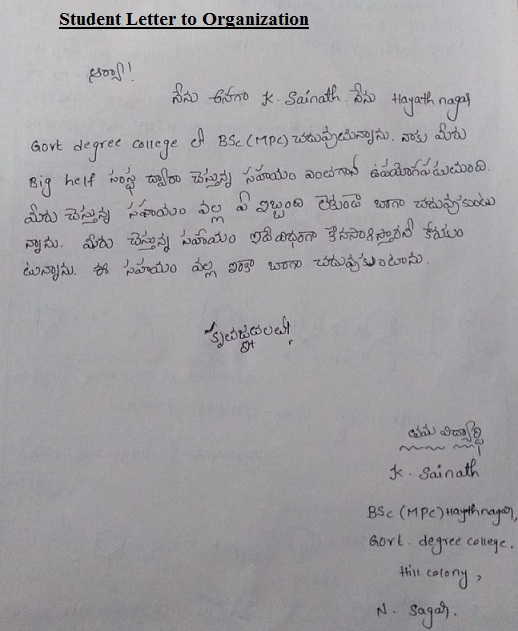 Student Letter to Organization
ఆర్యా!
నేను అనగా K. Sainath. నేను Hayathnagar
Govt degree college లో BSc (MPC) చదువుతున్నాను. నాకు మీరు
Big helf సంస్థ ద్వారా చేస్తున్న సహాయం ఎంతగానో ఉపయోగపడుతుంది.
మీరు చేస్తున్న సహాయం వల్ల ఏ ఇబ్బంది లేకుండా బాగా చదువుకుంటు
న్నాను. మీరు చేస్తున్న సహాయం ఇదే విధంగా కొనసాగిస్తారని కోరుకుం
టున్నాను. ఈ సహాయం వల్ల ఇంకా బాగా చదువుకుంటాను.
కృతజ్ఞతలతో,
తమ విద్యార్థి
K. Sainath
BSc (MPC) Hayathnagar,
Govt. degree college.
Hill colony,
N. Sagar.